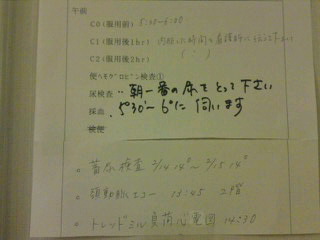 午前
C0(服用前) 5:30~6:00
C1(服用後1hr) 内服した時間を看護師に伝えて下さい
C2(服用後2hr) ( 〃 )
便ヘモグロビン検査①
尿検査 ・・朝一番の尿をとって下さい
採血 ・5°30'~6°に伺います
検便
○ 蓄尿検査 2/14 14°~2/15 14°
○ 頸動脈エコー 13:45 2階
○ トレッドミル負荷心電図 14:30